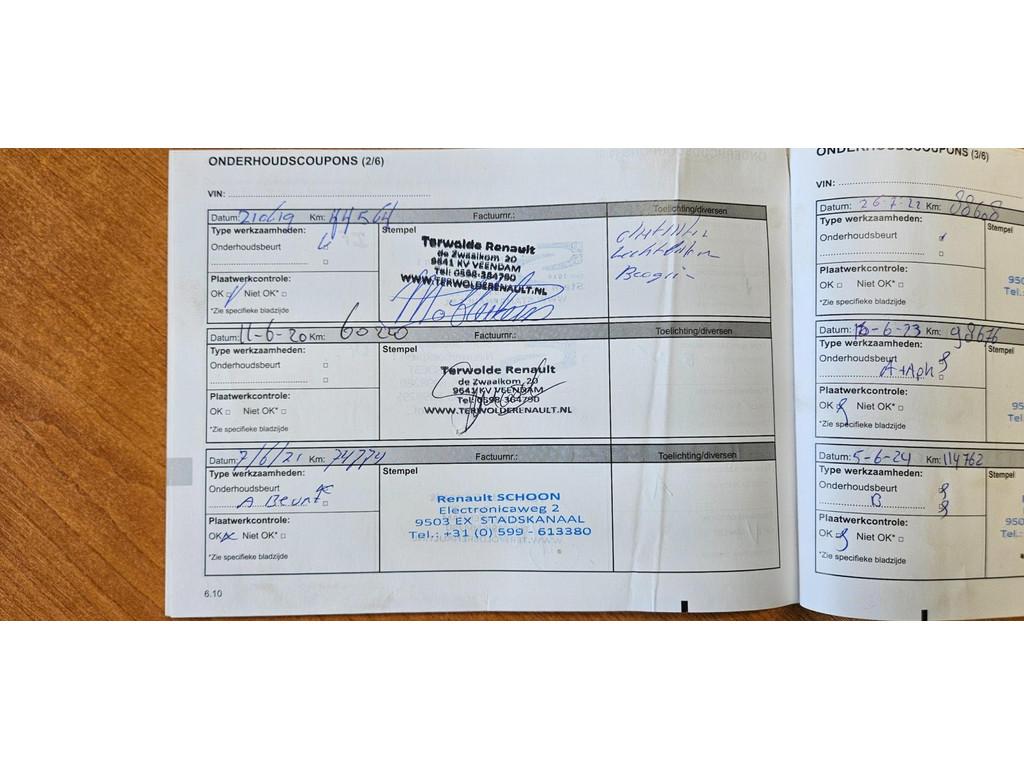 ONDERHOUDSCOUPONS (2/6)
VIN:
Datum: Km: 44564 Factuurnr.: Toelichting/diversen
Type werkzaamheden: Stempel
Onderhoudsbeurt
Terwolde Renault
de Zwaaikom 20
9641 KV VEENDAM
Tel: 0598-364790
WWW.TERWOLDERENAULT.NL
Plaatwerkcontrole:
OK Niet OK*
*Zie specifieke bladzijde
Datum: 11-6-20 Km: 60240 Factuurnr.: Toelichting/diversen
Type werkzaamheden: Stempel
Onderhoudsbeurt
Terwolde Renault
de Zwaaikom 20
9641 KV VEENDAM
Tel: 0598-364790
WWW.TERWOLDERENAULT.NL
Plaatwerkcontrole:
OK Niet OK*
*Zie specifieke bladzijde
Datum: 7/6/21 Km: 74774 Factuurnr.: Toelichting/diversen
Type werkzaamheden: Stempel
Onderhoudsbeurt
A Beurt
Renault SCHOON
Electronicaweg 2
9503 EX STADSKANAAL
Tel.: +31 (0) 599 - 613380
Plaatwerkcontrole:
OK Niet OK*
*Zie specifieke bladzijde
6.10
ONDERHOUDSCOUPONS (3/6)
VIN:
Datum: 26-7-22 Km: 88608
Type werkzaamheden: Stempel
Onderhoudsbeurt
Plaatwerkcontrole:
OK Niet OK*
950
Tel.:
*Zie specifieke bladzijde
Datum: Km: 98676
Type werkzaamheden: Stempel
Onderhoudsbeurt
A+Aph
Plaatwerkcontrole:
OK Niet OK*
95
Te
*Zie specifieke bladzijde
Datum: 5-6-24 Km: 114762
Type werkzaamheden: Stempel
Onderhoudsbeurt
B
Plaatwerkcontrole:
OK Niet OK*
950
Tel.
*Zie specifieke bladzijde